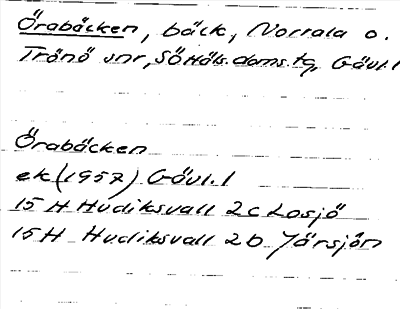 Örabäcken, bäck, Norrala o.
Trönö snr, SöHäls. doms. tg, Gävl. l
Örabäcken
ek (1957) Gävl. l
15 H Hudiksvall 2c Losjö
15 H Hudiksvall 2b Järsjön